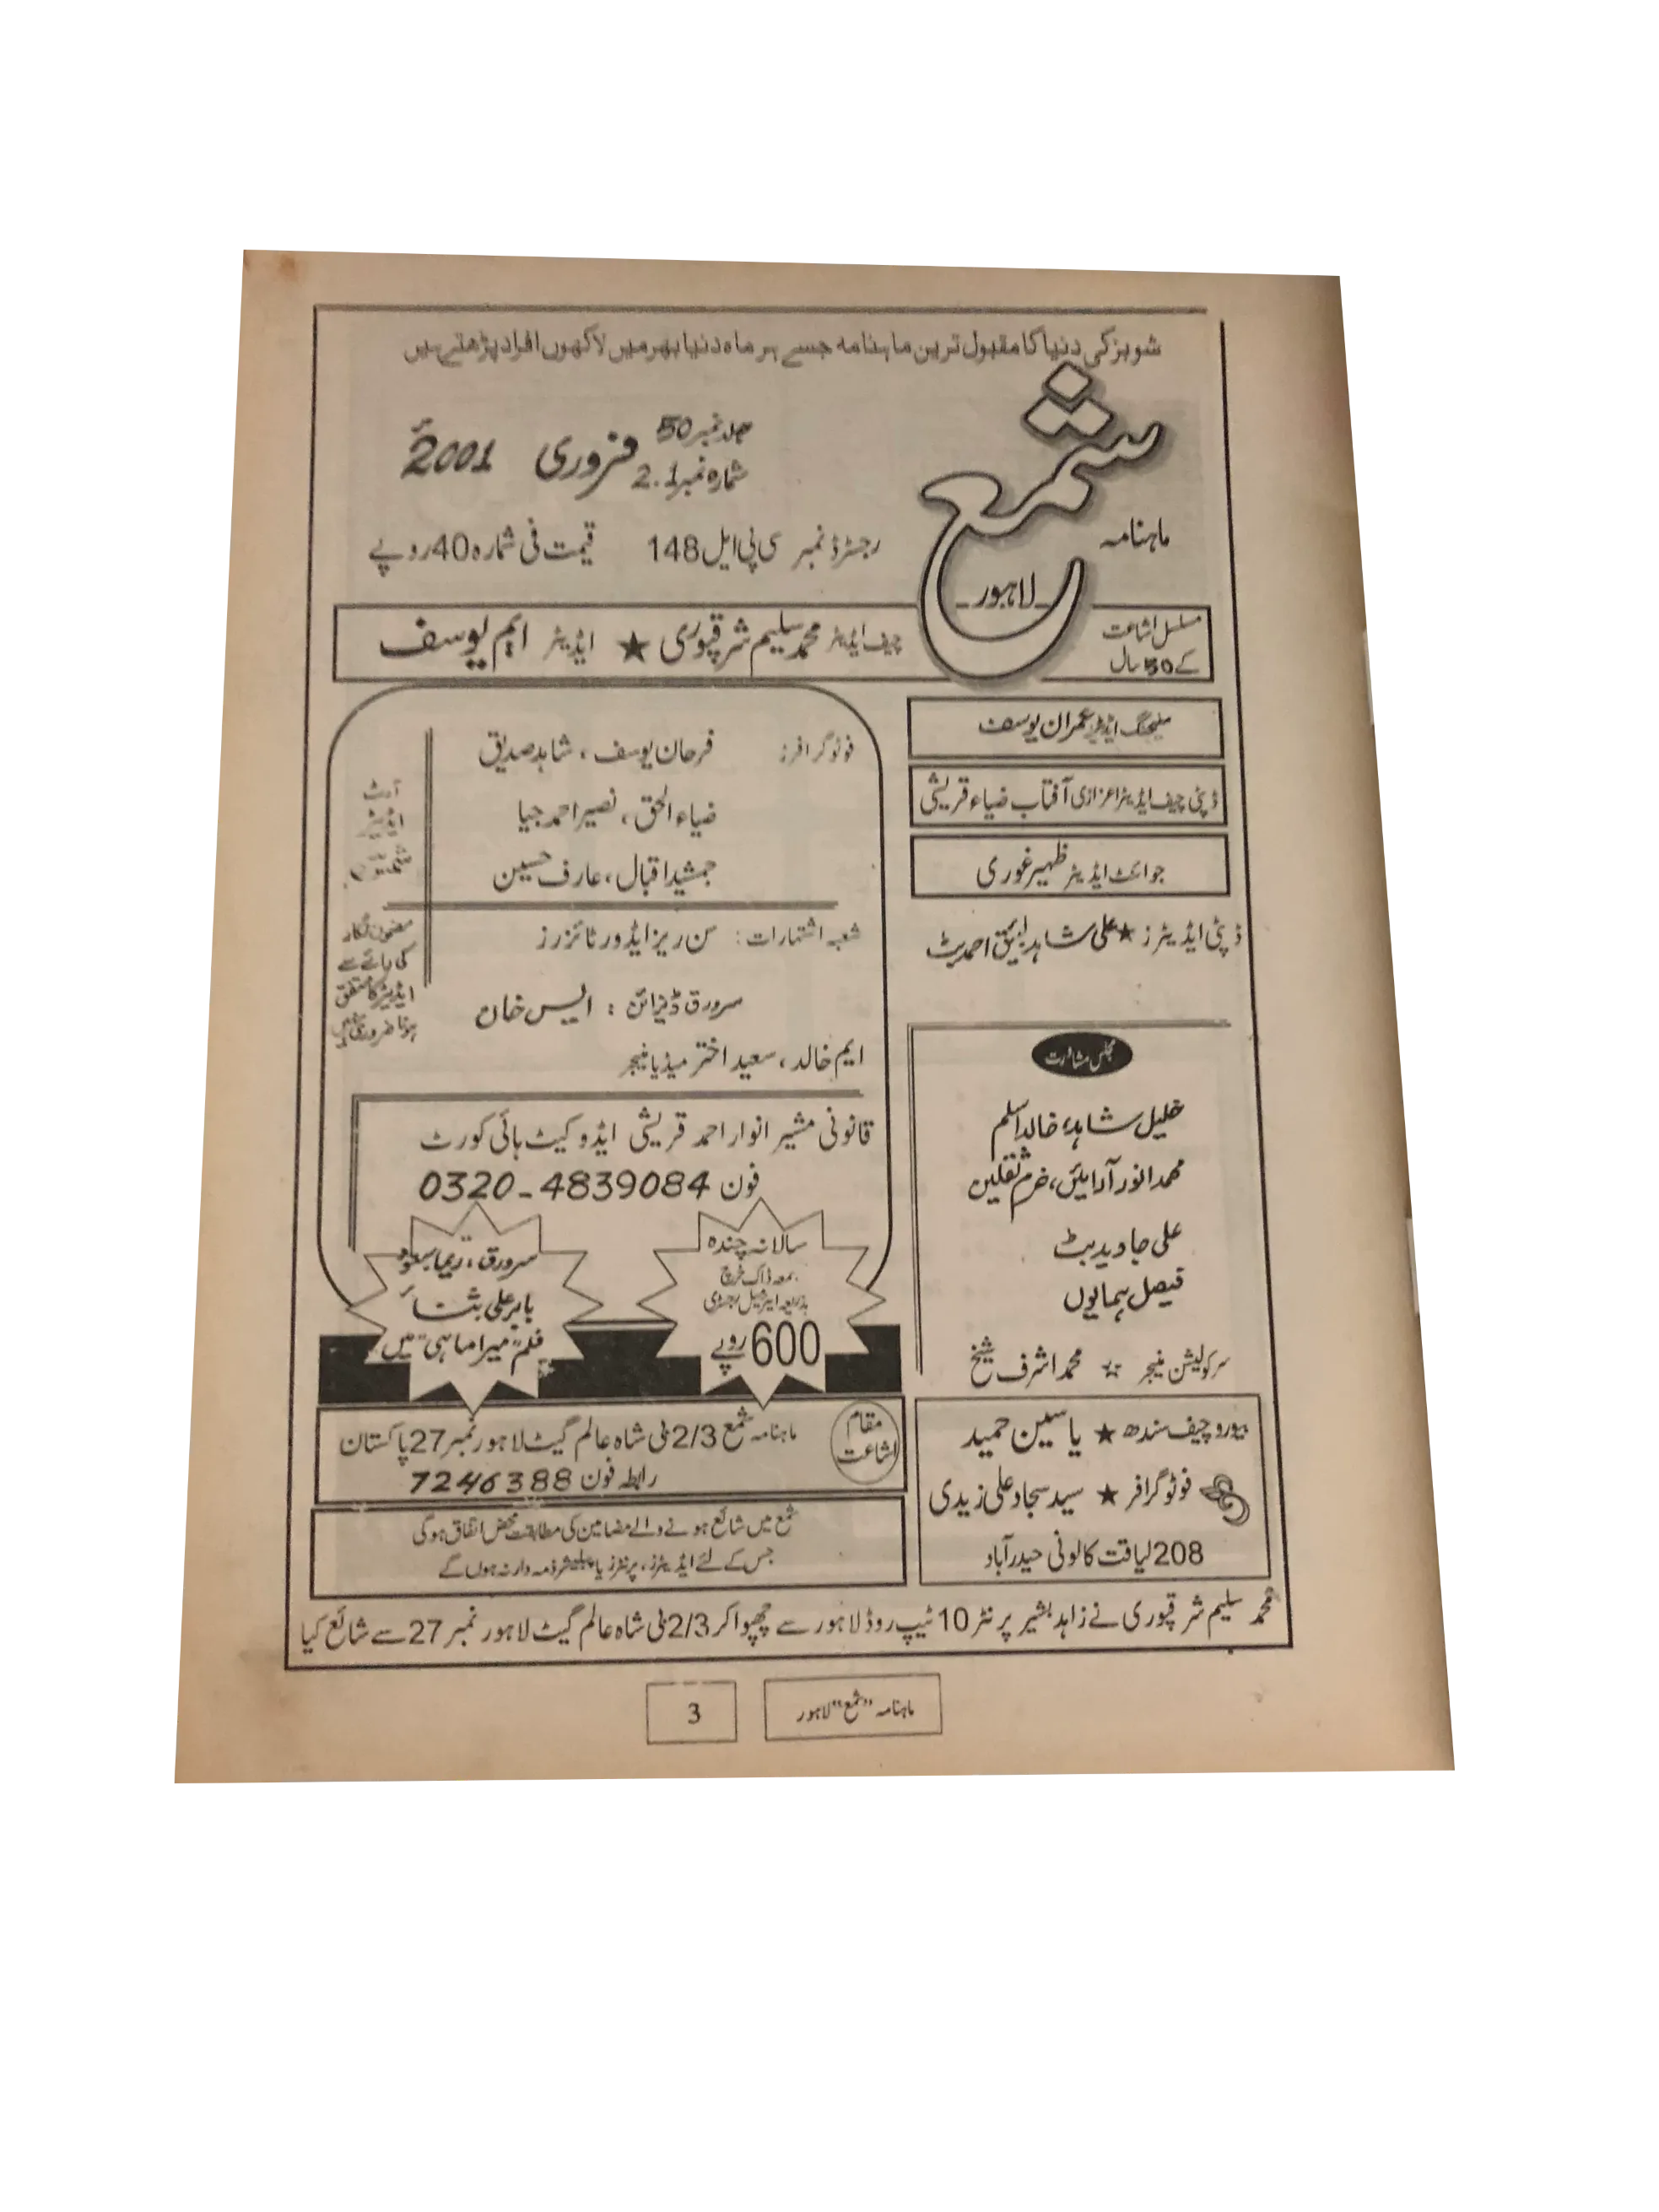 شوبز کی دنیا کا مقبول ترین ماہنامہ جسے ہر ماہ دنیا بھر میں لاکھوں افراد پڑھتے ہیں
ماہنامہ
شمع
لاہور
جلد نمبر 50
شمارہ نمبر 2.1
فروری 2001ء
رجسٹرڈ نمبر سی پی ایل 148 قیمت فی شمارہ 40 روپے
مسلسل اشاعت
کے 50 سال
چیف ایڈیٹر محمد سلیم شرقپوری ★ ایڈیٹر ایم یوسف
منیجنگ ایڈیٹر عمران یوسف
ڈپٹی چیف ایڈیٹر اعزازی آفتاب ضیاء قریشی
جوائنٹ ایڈیٹر ظہیر غوری
ڈپٹی ایڈیٹرز ★ علی شاہد لئیق احمد بٹ
مجلس مشاورت
خلیل شاہد، خالد اسلم
محمد انور آرائیں، خرم ثقلین
علی جاوید بٹ
فیصل ہمایوں
سرکولیشن منیجر ☆ محمد اشرف شیخ
بیورو چیف سندھ ★ یاسین حمید
فوٹوگرافر ★ سید سجاد علی زیدی
208 لیاقت کالونی حیدرآباد
فوٹوگرافر: فرحان یوسف، شاہد صدیق
ضیاء الحق، نصیر احمد جیا
جمشید اقبال، عارف حسین
شعبہ اشتہارات: سن ریز ایڈورٹائزرز
سرورق ڈیزائن: ایس خان
ایم خالد، سعید اختر میڈیا منیجر
آرٹ
ایڈیٹر
مضمون نگار
کی رائے سے
ایڈیٹر کا متفق
ہونا ضروری نہیں
قانونی مشیر انوار احمد قریشی ایڈووکیٹ ہائی کورٹ
فون 0320-4839084
سالانہ چندہ
بمعہ ڈاک خرچ
بذریعہ ایئر میل رجسٹری
600 روپے
سرورق، ریما سعود
بابر علی ثناء
فلم "میرا ماہی" میں
مقام
اشاعت
ماہنامہ شمع 2/3 بی شاہ عالم گیٹ لاہور نمبر 27 پاکستان
رابطہ فون 7246388
شمع میں شائع ہونے والے مضامین کی مطابقت محض اتفاق ہوگی
جس کے لئے ایڈیٹرز، پرنٹرز یا پبلیشر ذمہ دار نہ ہوں گے
محمد سلیم شرقپوری نے زاہد بشیر پرنٹر 10 ٹیپ روڈ لاہور سے چھپوا کر 2/3 بی شاہ عالم گیٹ لاہور نمبر 27 سے شائع کیا
ماہنامہ "شمع" لاہور
3